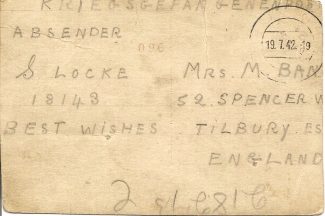 KRIEGSGEFANGENENPOS
ABSENDER
096
19.7.42.19
S LOCKE
18143
BEST WISHES
MRS. M. BAN
52. SPENCER W
TILBURY. ES
ENGLAND